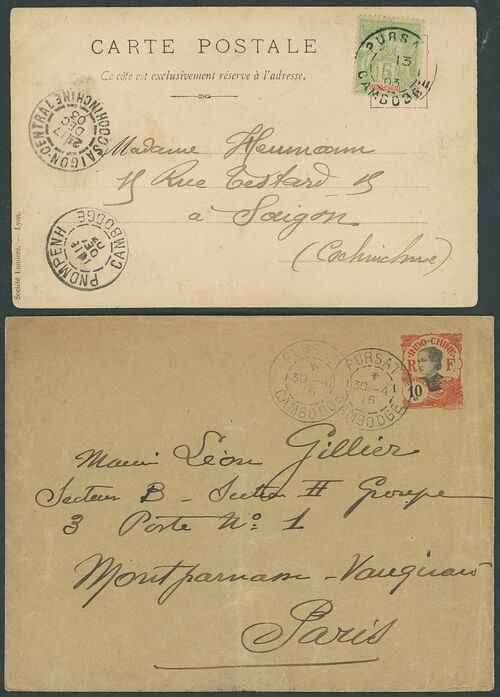 CARTE POSTALE
Ce côté est exclusivement réservé à l'adresse.
PURSAT
13
03
CAMBODGE
15
INDO-CHINE
SAIGON-CENTRAL
COCHINCHINE
17
DEC
03
Madame Heumann
15 Rue Testard 15
à Saigon
(Cochinchine)
PNOMPENH
CAMBODGE
16
DEC
03
Société Lumière. — Lyon.
PURSAT
30-4
15
CAMBODGE
PURSAT
30-4
15
CAMBODGE
INDO-CHINE
R F
10
Léon Gillier
Secteur B - Section II Groupe
3 Poste No: 1
Montparnasse - Vaugirard
Paris